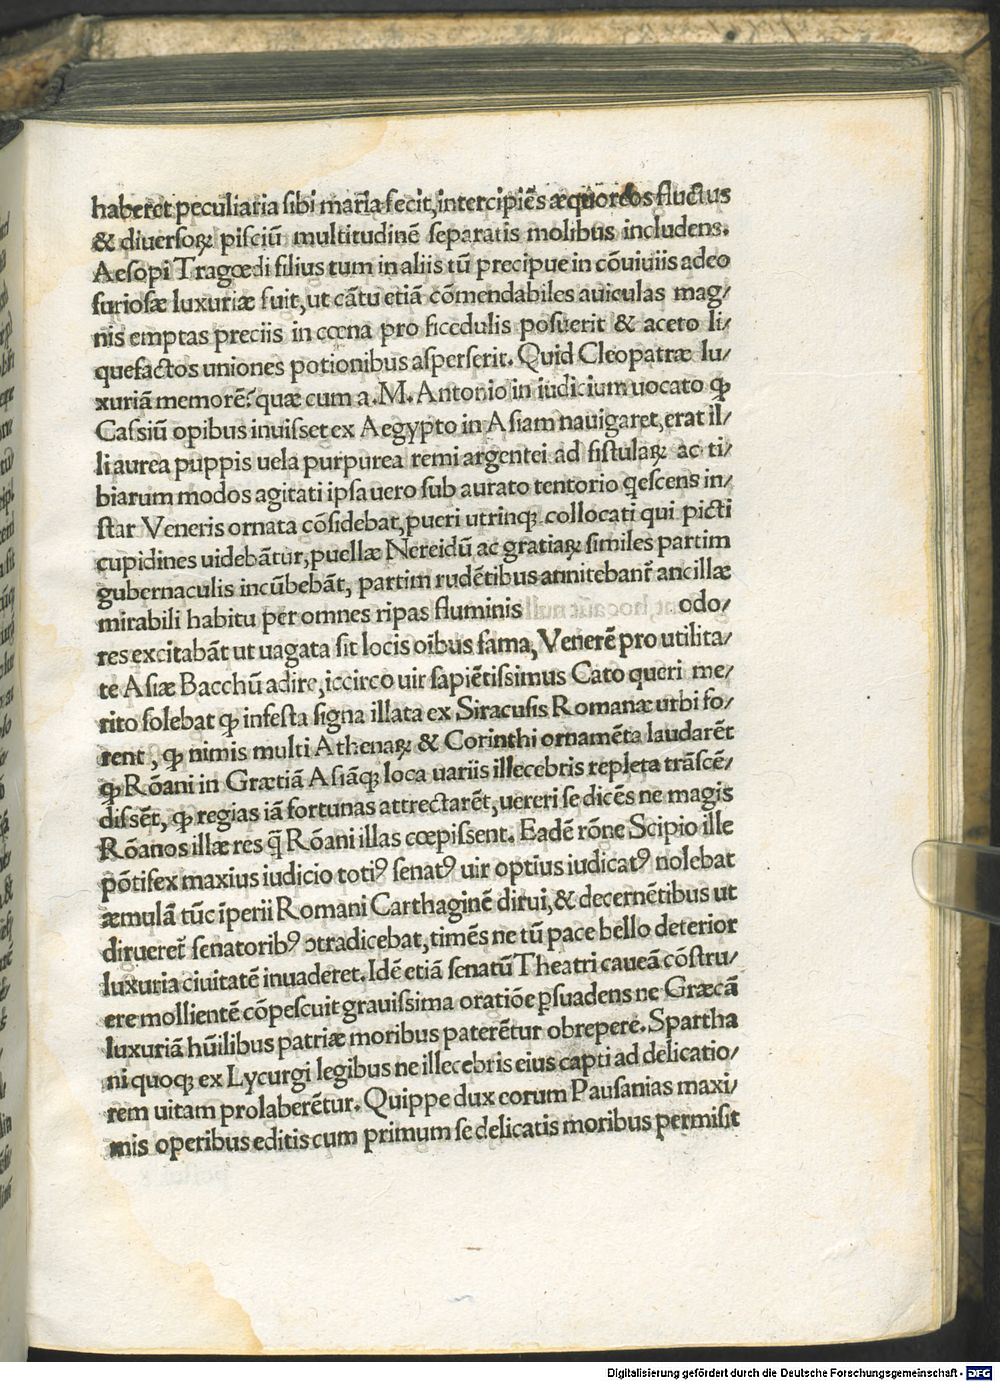 haberet peculiaria sibi maria fecit, intercipiēs æquoreos fluctus
& diuersoꝝ pisciū multitudinē separatis molibus includens.
Aesopi Tragœdi filius tum in aliis tū precipue in cōuiuiis adeo
furiosæ luxuriæ fuit, ut cātu etiā cōmendabiles auiculas mag/
nis emptas preciis in cœna pro ficedulis posuerit & aceto li/
quefactos uniones potionibus asperserit. Quid Cleopatræ lu/
xuriā memorē? quæ cum a. M. Antonio in iudicium uocato ꝙ
Cassiū opibus inuisset ex Aegypto in Asiam nauigaret, erat il/
li aurea puppis uela purpurea remi argentei ad fistulaꝝ ac ti/
biarum modos agitati ipsa uero sub aurato tentorio q̄escens in/
star Veneris ornata cōsidebat, pueri utrinqꝫ collocati qui picti
cupidines uidebātur, puellæ Nereidū ac gratiaꝝ similes partim
gubernaculis incūbebāt, partim rudētibus annitebant᷑ ancillæ
mirabili habitu per omnes ripas fluminis odo/
res excitabāt ut uagata sit locis oībus fama, Venerē pro utilita/
te Asiæ Bacchū adire, iccirco uir sapiētissimus Cato queri me/
rito solebat ꝙ infesta signa illata ex Siracusis Romanæ urbi fo/
rent, ꝙ nimis multi Athenaꝝ & Corinthi ornamēta laudarēt
ꝙ Rōani in Grætiā Asiāqꝫ loca uariis illecebris repleta trāscē/
dissēt, ꝙ regias iā fortunas attrectarēt, uereri se dicēs ne magis
Rōanos illæ res q̄ Rōani illas cœpissent. Eadē rōne Scipio ille
pōtifex maxius iudicio totiꝰ senatꝰ uir optīus iudicatꝰ nolebat
æmulā tūc īperii Romani Carthaginē dirui, & decernētibus ut
dirueret᷑ senatoribꝰ ꝯtradicebat, timēs ne tū pace bello deterior
luxuria ciuitatē inuaderet. Idē etiā senatū Theatri caueā cōstru/
ere mollientē cōpescuit grauissima oratiōe ꝑsuadens ne Græcā
luxuriā hūilibus patriæ moribus paterētur obrepere. Spartha
ni quoqꝫ ex Lycurgi legibus ne illecebris eius capti ad delicatio/
rem uitam prolaberētur. Quippe dux eorum Pausanias maxi/
mis operibus editis cum primum se delicatis moribus permisit
Digitalisierung gefördert durch die Deutsche Forschungsgemeinschaft - DFG